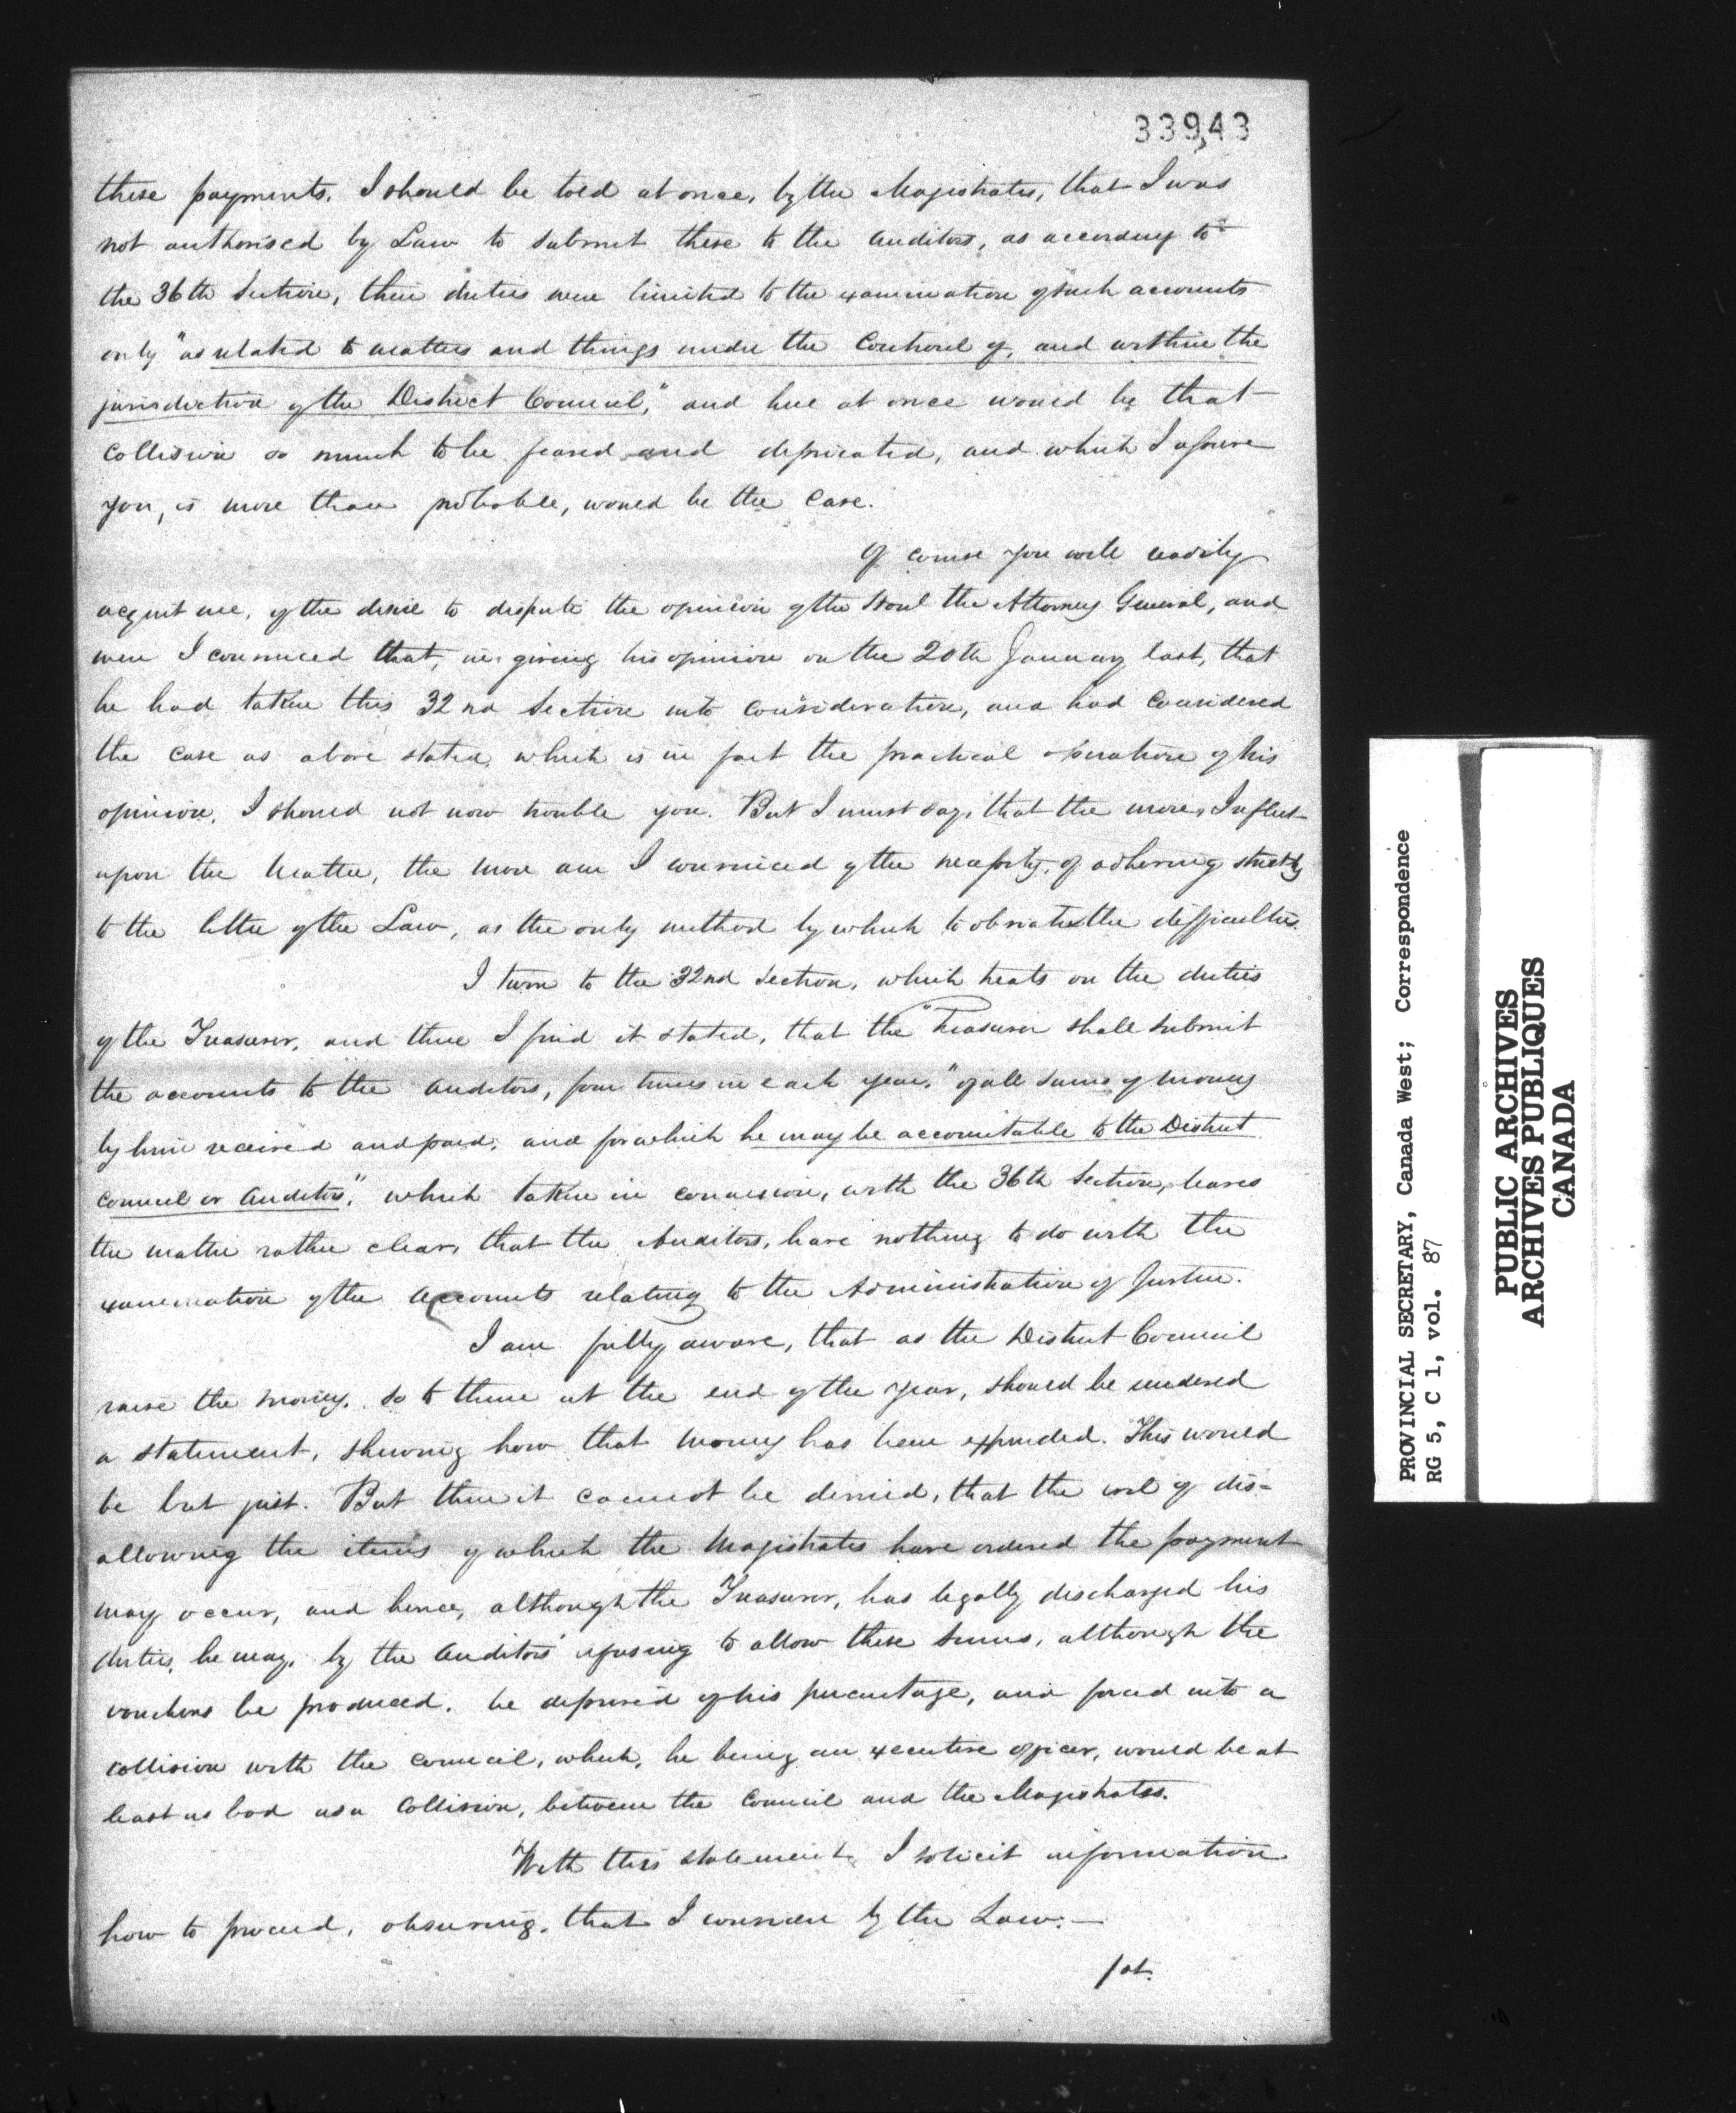 33943
these payments. I should be told at once, by the Magistrates, that I was
not authorised by Law to submit these to the Auditors, as according to
the 36th Section, their duties were limited to the examination of such accounts
only "as related to matters and things under the Controul of, and within the
jurisdiction of the District Council," and here at once would be that
Collision so much to be feared and depricated, and which I assure
you, is more than probable, would be the Case.
Of course you will readily
acquit me, of the desire to dispute the opinion of the Honl the Attorney General, and
were I convinced that, in giving his opinion on the 20th January last, that
he had taken this 32nd Section into consideration, and had Considered
the Case as above stated, which is in fact the practical operation of his
opinion, I should not now trouble you. But I must say, that the more, I reflect
upon the Matter, the more am I convinced of the necessity, of adhering strictly
to the letter of the Law, as the only method by which to obviate the difficulties.
I turn to the 32nd Section, which treats on the duties
of the Treasurer, and there I find it stated, that the "Treasurer shall submit
the accounts to the Auditors, four times in each year, "of all sums of money
by him received and paid, and for which he may be accountable to the District
Council or Auditors", which taken in connexion, with the 36th Section, leaves
the matter rather clear, that the Auditors, have nothing to do with the
examination of the Accounts relating to the Administration of Justice.
I am fully aware, that as the District Council
raise the money, so to them at the end of the year, should be rendered
a statement, shewing how that money has been expended. This would
be but just. But then it cannot be denied, that the evil of dis-
allowing the items of which the Magistrates have ordered the payment
may occur, and hence, although the Treasurer, has legally discharged his
duties, he may, by the Auditors' refusing to allow these sums, although the
vouchers be produced, be deprived of his percentage, and forced into a
collision with the Council, which, he being an executive officer, would be at
least as bad as a Collision, between the Council and the Magistrates.
With this statement, I solicit information
how to proceed, observing, that I consider by the Law.—
1st.
PROVINCIAL SECRETARY, Canada West; Correspondence
RG 5, C 1, vol. 87
PUBLIC ARCHIVES
ARCHIVES PUBLIQUES
CANADA